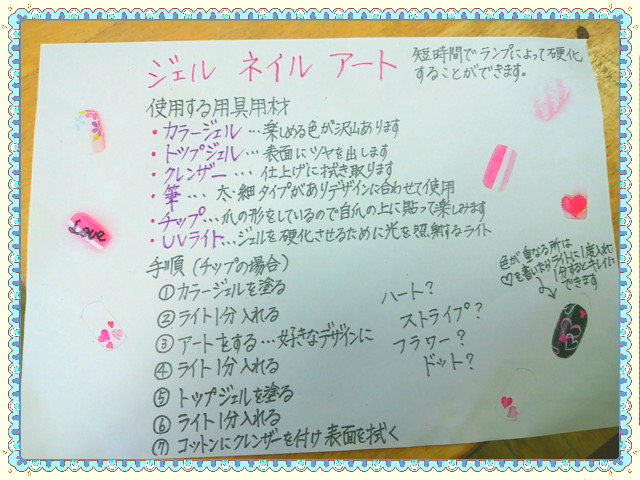 ジェル ネイル アート
短時間でランプによって硬化
することができます。
使用する用具用材
・カラージェル…楽しめる色が沢山あります
・トップジェル…表面にツヤを出します
・クレンザー … 仕上げに拭き取ります
・筆 … 太・細タイプがありデザインに合わせて使用
・チップ…爪の形をしているので自爪の上に貼って楽しみます
・UVライト…ジェルを硬化させるために光を照射するライト
Love
手順(チップの場合)
①カラージェルを塗る
②ライト1分入れる
③アートをする…好きなデザインに
④ライト1分入れる
⑤トップジェルを塗る
⑥ライト1分入れる
⑦コットンにクレンザーを付け表面を拭く
ハート?
ストライプ?
フラワー?
ドット?
色が重なる所は
♡を書いたらライトに1度入れ
1分するとキレイに
できます